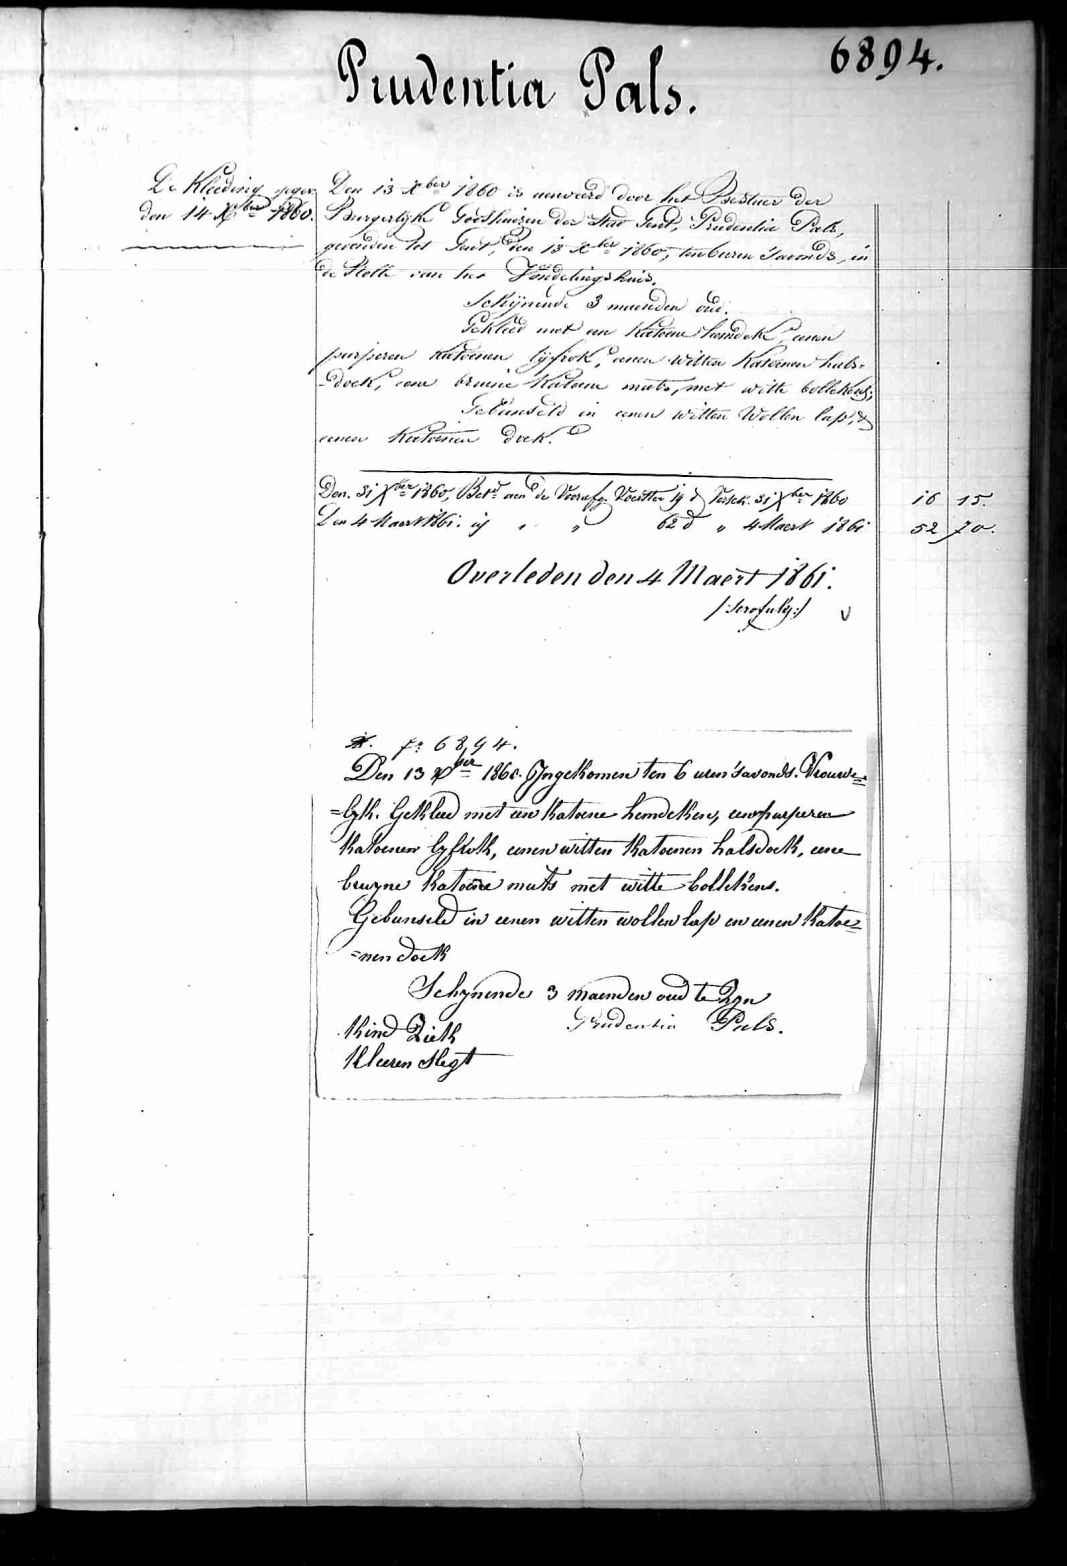 6894.
Prudentia Pals.
De Kleeding gegev.
den 14 Xber 1860.
Den 13 Xber 1860 is aenveerd door het Bestuer der
Burgerlyke Godshuizen der Stad Gent, Prudentia Pals,
gevonden tot Gent, den 13 Xber 1860, ten 6 uren 's avonds, in
de Rolle van het Vondelingshuis.
Schijnende 3 maenden oud.
Gekleed met een Katoene hemdeke, eenen
purperen Katoenen lyfrok, eenen witten Katoenen hals-
-doek, eene bruine Katoene muts, met witte bollekens;
Gebunseld in eenen witten Wollen lap, &
eenen Katoenen doek.
Den 31 Xber 1860, Bet. aen de Voorzorg. Voester 19 d Versch. 31 Xber 1860 16 15.
Den 4 Maert 1861. ij " " 62 d " 4 Maert 1861 52 70.
Overleden den 4 Maert 1861.
/:scrofuly:/
f: 6894.
Den 13 Xber 1860. Ingekomen ten 6 uren 's avonds. Vrouwe-
=lyk. Gekleed met een katoene hemdeken, een purperen
katoenen lyfrok, eenen witten katoenen halsdoek, eene
bruyne katoene muts met witte bollekens.
Gebunseld in eenen witten wollen lap en eenen katoe-
=nen doek
Schynende 3 maenden oud te Zyn
Prudentia Pals.
Kind Ziek
Kleeren Slegt